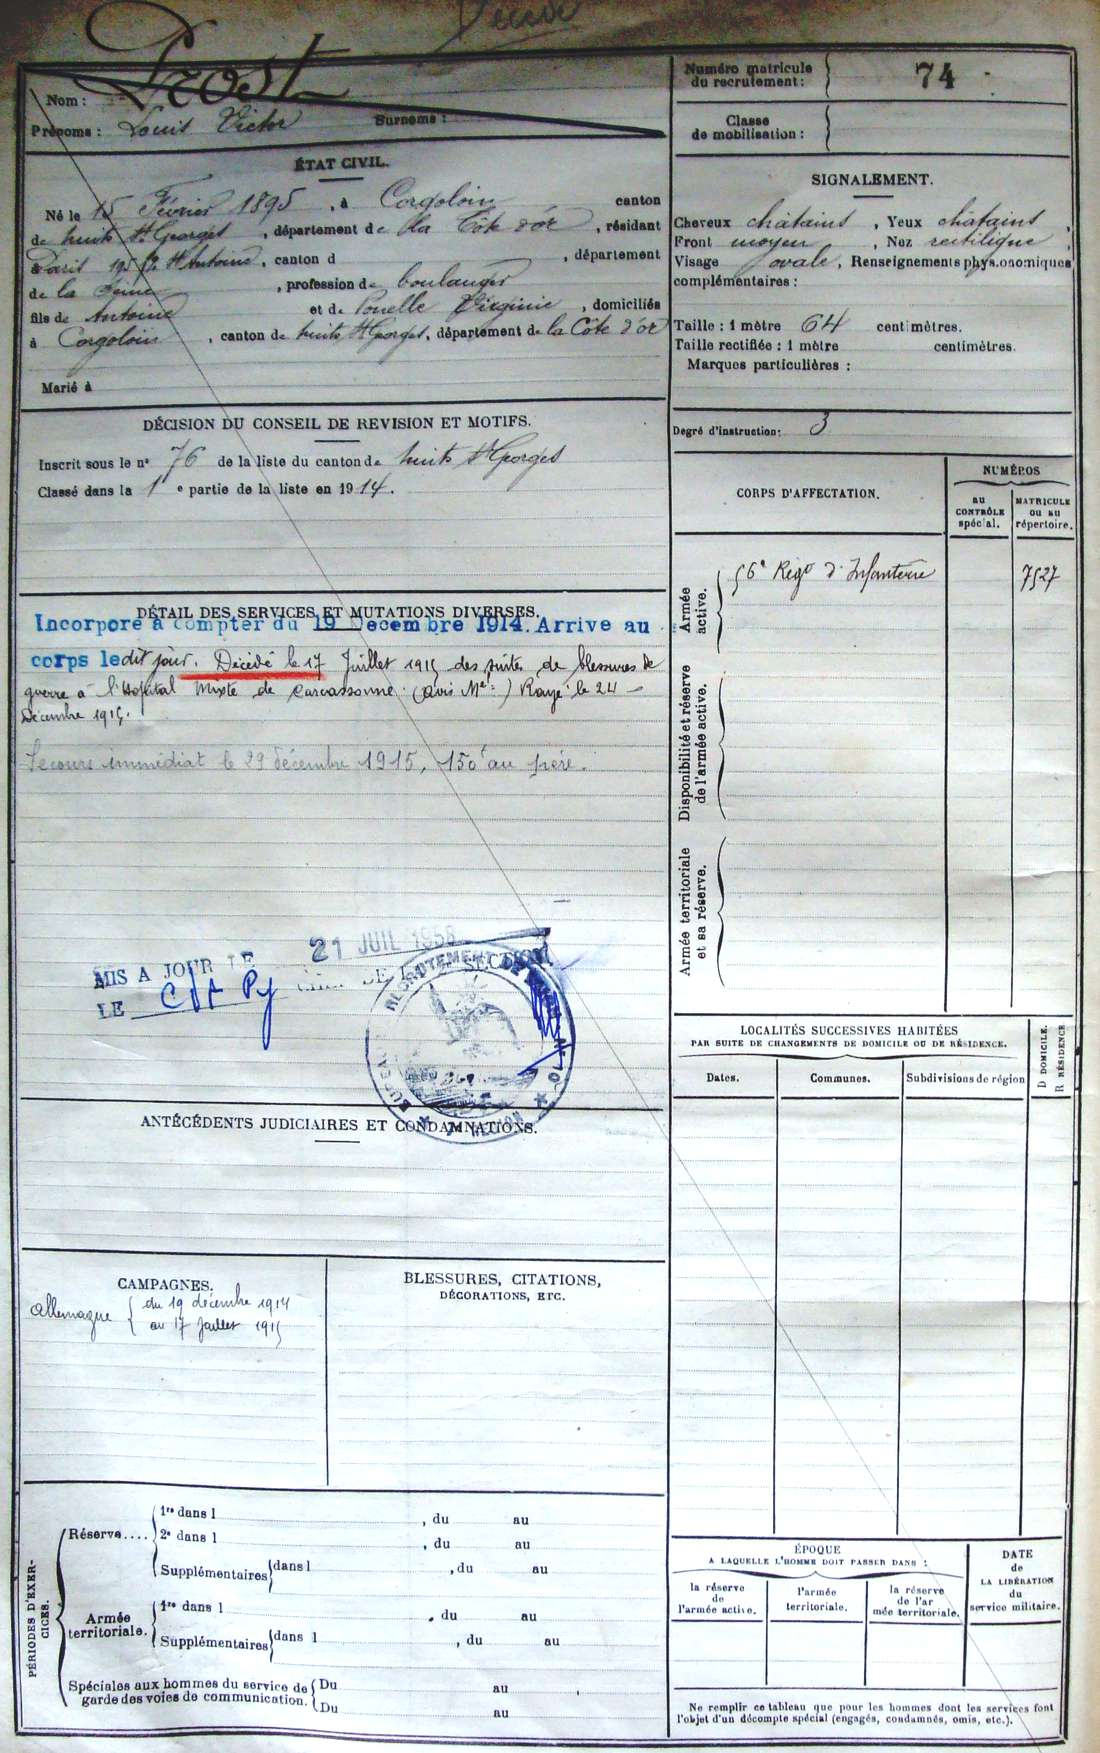 Décédé
Nom : Prost
Prénoms : Louis Victor Surnoms :
ÉTAT CIVIL.
Né le 15 Février 1895, à Corgoloin canton
de Nuits St Georges, département de la Côte d'or, résidant
à Paris 195 St Antoine, canton d , département
de la Seine, profession de boulanger
fils de Antoine et de Virginie, domiciliés
à Corgoloin, canton de Nuits St Georges, département de la Côte d'or
Marié à
DÉCISION DU CONSEIL DE REVISION ET MOTIFS.
Inscrit sous le n° 76 de la liste du canton de Nuits St Georges
Classé dans la 1e partie de la liste en 1914.
DÉTAIL DES SERVICES ET MUTATIONS DIVERSES.
Incorporé à compter du 19 Décembre 1914. Arrivé au
corps ledit jour. Décédé le 17 Juillet 1915 des suites de blessures de
guerre à l'Hôpital Mixte de Carcassonne (avis Mel) Rayé le 24
Décembre 1915.
Secours immédiat le 29 décembre 1915, 150f au père.
21 JUIL 1958
MIS A JOUR
LE
SECTION
BUREAU RECRUTEMENT
RÉGION
ANTÉCÉDENTS JUDICIAIRES ET CONDAMNATIONS.
CAMPAGNES.
Allemagne { du 19 décembre 1914
au 17 Juillet 1915
BLESSURES, CITATIONS,
DÉCORATIONS, ETC.
PÉRIODES D'EXERCICES.
Réserve.... 1re dans l , du au
2e dans l , du au
Supplémentaires dans l , du au
Armée territoriale. 1re dans l , du au
Supplémentaires dans l , du au
Spéciales aux hommes du service de Du au
garde des voies de communication. Du au
Numéro matricule
du recrutement : 74
Classe
de mobilisation :
SIGNALEMENT.
Cheveux châtains, Yeux châtains,
Front moyen, Nez rectiligne,
Visage ovale, Renseignements physionomiques
complémentaires :
Taille : 1 mètre 64 centimètres.
Taille rectifiée : 1 mètre centimètres.
Marques particulières :
Degré d'instruction : 3
CORPS D'AFFECTATION.
NUMÉROS
AU
CONTRÔLE
spécial.
MATRICULE
OU AU
répertoire.
Armée
active.
56e Régt d'Infanterie 7527
Disponibilité et réserve
de l'armée active.
Armée territoriale
et sa réserve.
LOCALITÉS SUCCESSIVES HABITÉES
PAR SUITE DE CHANGEMENTS DE DOMICILE OU DE RÉSIDENCE.
D DOMICILE.
R RÉSIDENCE
Dates. Communes. Subdivisions de région
ÉPOQUE
A LAQUELLE L'HOMME DOIT PASSER DANS :
la réserve
de
l'armée active.
l'armée
territoriale.
la réserve
de l'ar
mée territoriale.
DATE
de
LA LIBÉRATION
du
service militaire.
Ne remplir ce tableau que pour les hommes dont les services font
l'objet d'un décompte spécial (engagés, condamnés, omis, etc.).